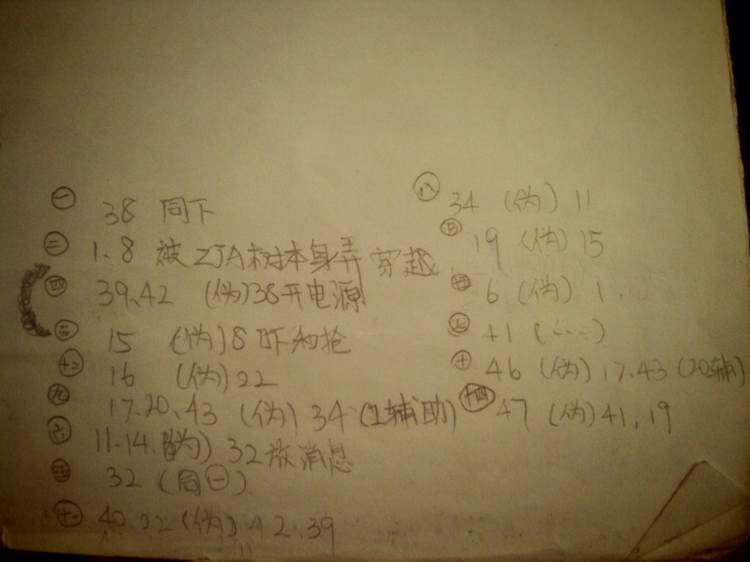 ㊀ 38 同下
㊁ 1.8 被ZJA树本身弄穿越
㊃ 39.42 (伪)38开电源
㊂ 15 (伪)8吓和抢
十二 16 (伪)22
㊈ 17.20.43 (伪)34(1辅助)
㊅ 11.14.(伪)32放消息
32 (同㊀)
十一 40.22(伪)42.39
㊇ 34 (伪)11
19 (伪)15
6 (伪)1.
41 (……)
㊉ 46 (伪)17.43(20辅)
十四 47 (伪)41.19